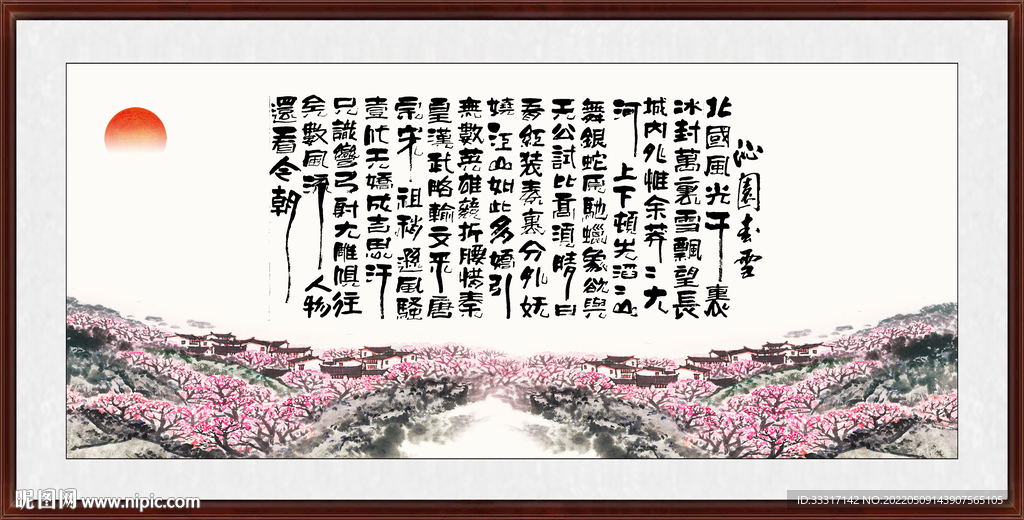 沁園春雪
北國風光千裏
冰封萬裏雪飄望長
城内外惟余莽〻大
河上下頓失滔〻山
舞銀蛇原馳蠟象欲與
天公試比高須晴日
看紅裝素裹分外妖
嬈江山如此多嬌引
無數英雄競折腰惜秦
皇漢武略輸文采唐
宗宋祖稍遜風騷
壹代天嬌成吉思汗
只識彎弓射大雕俱往
矣數風流人物
還看今朝
昵图网 www.nipic.com
ID:33317142 NO.20220509143907565105